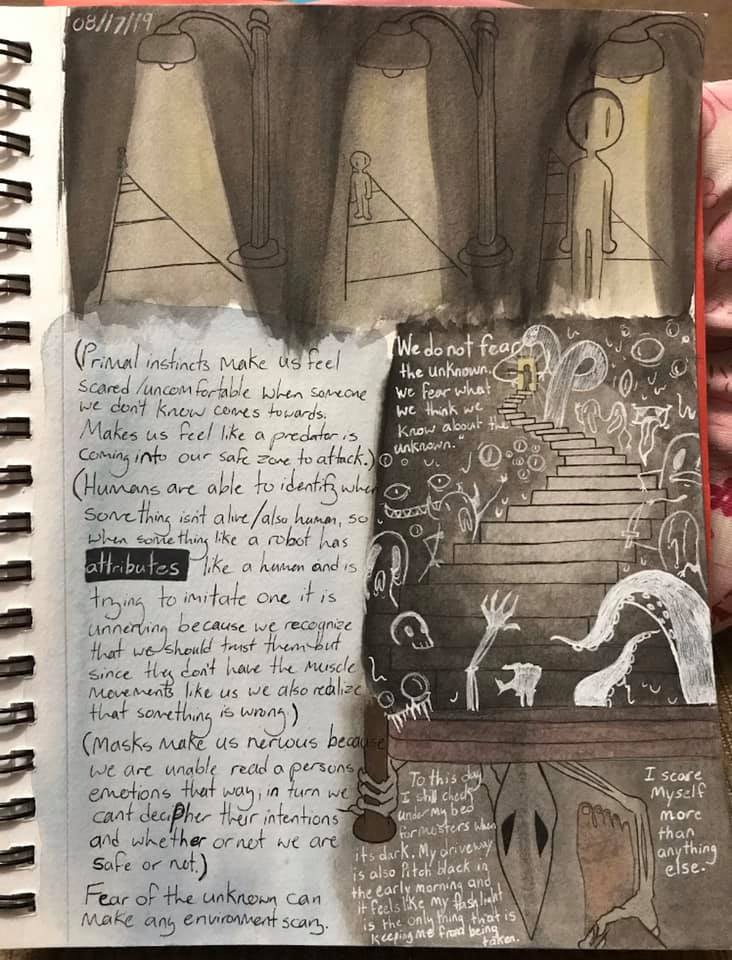 08/17/19
(Primal instincts make us feel
scared/uncomfortable when someone
we don't know comes towards.
Makes us feel like a predator is
coming into our safe zone to attack.)
(Humans are able to identify when
something isn't alive/also human, so
when something like a robot has
attributes like a human and is
trying to imitate one it is
unnerving because we recognize
that we should trust them but
since they don't have the muscle
movements like us we also realize
that something is wrong.)
(Masks make us nervous because
we are unable read a persons
emotions that way, in turn we
cant decipher their intentions
and whether or not we are
safe or not.)
Fear of the unknown can
make any environment scary.
We do not fear
the unknown.
We fear what
we think we
know about the
unknown."
To this day
I still check
under my bed
for monsters when
its dark. My driveway
is also Pitch black in
the early morning and
it feels like my flashlight
is the only thing that is
keeping me from being
taken.
I scare
Myself
more
than
anything
else.